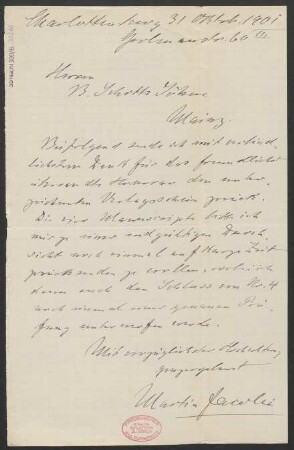 Charlottenburg 31 Oktob. 1901
60 III.
Herren
B. Schott's Söhne
Mainz.
Beifolgend sende ich mit verbind-
lichstem Dank für das freundlichst
übersandte Honorar den unter-
zeichneten Verlagsschein zurück.
Die vier Manuscripte bitte ich
mir zu einer endgültigen Durch-
sicht noch einmal auf kurze Zeit
zurücksenden zu wollen, weil ich
dann auch den Schluss von Nr. 4
noch einmal einer genauen Prü-
fung unterwerfen werde.
Mit vorzüglicher Hochachtung
ganz ergebenst
Martin Jacobi